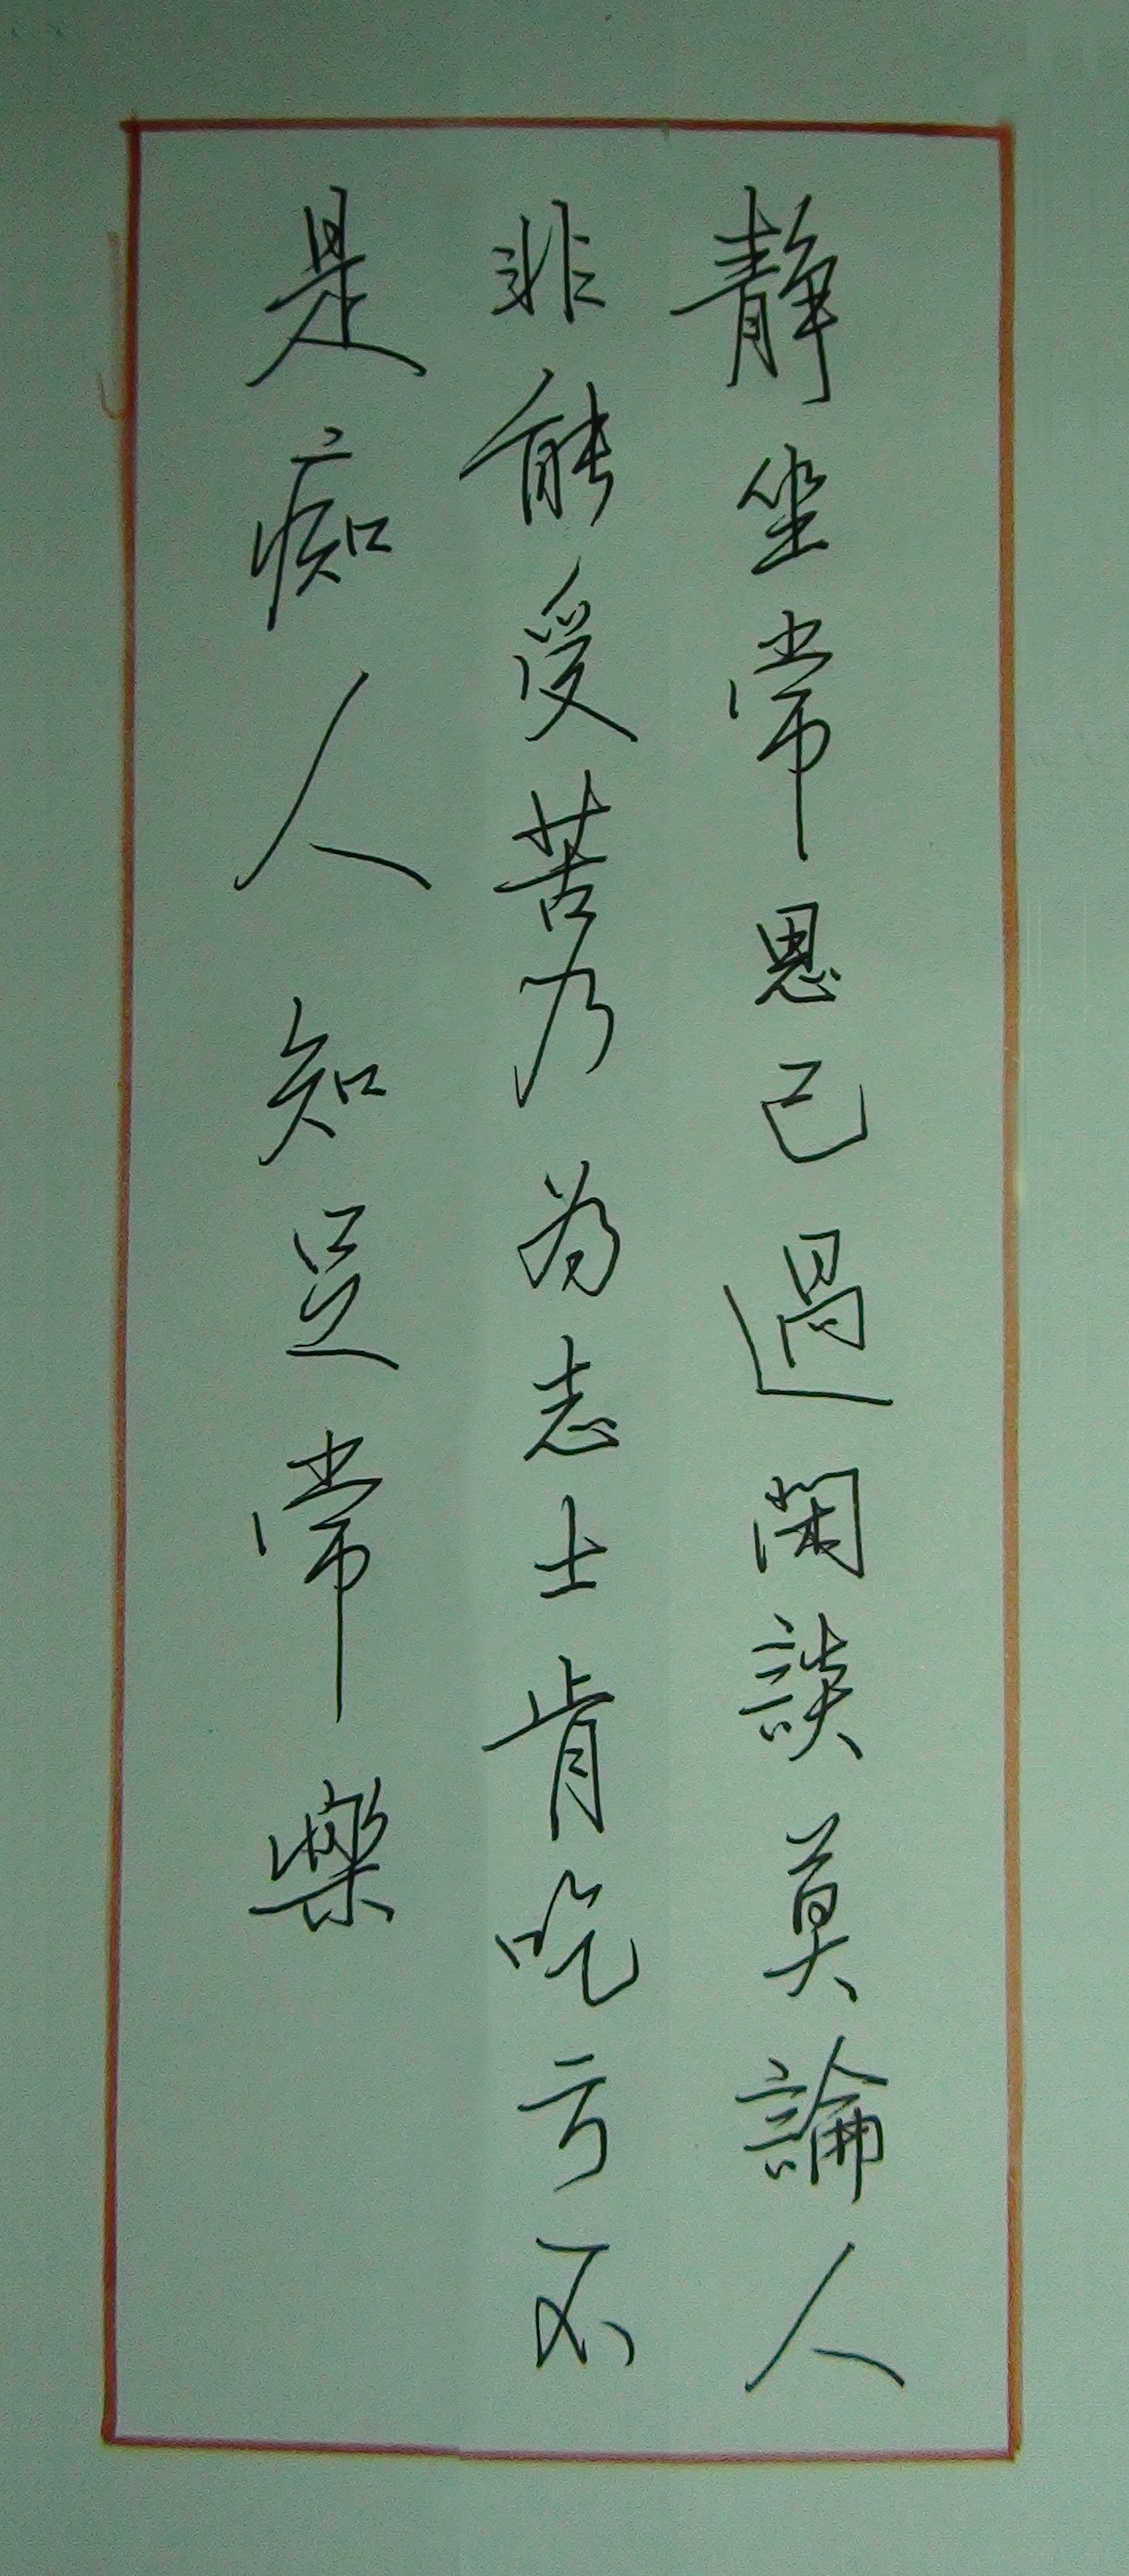 静坐常思己過閑談莫論人
非能受苦乃為志士肯吃亏不
是痴人知足常樂